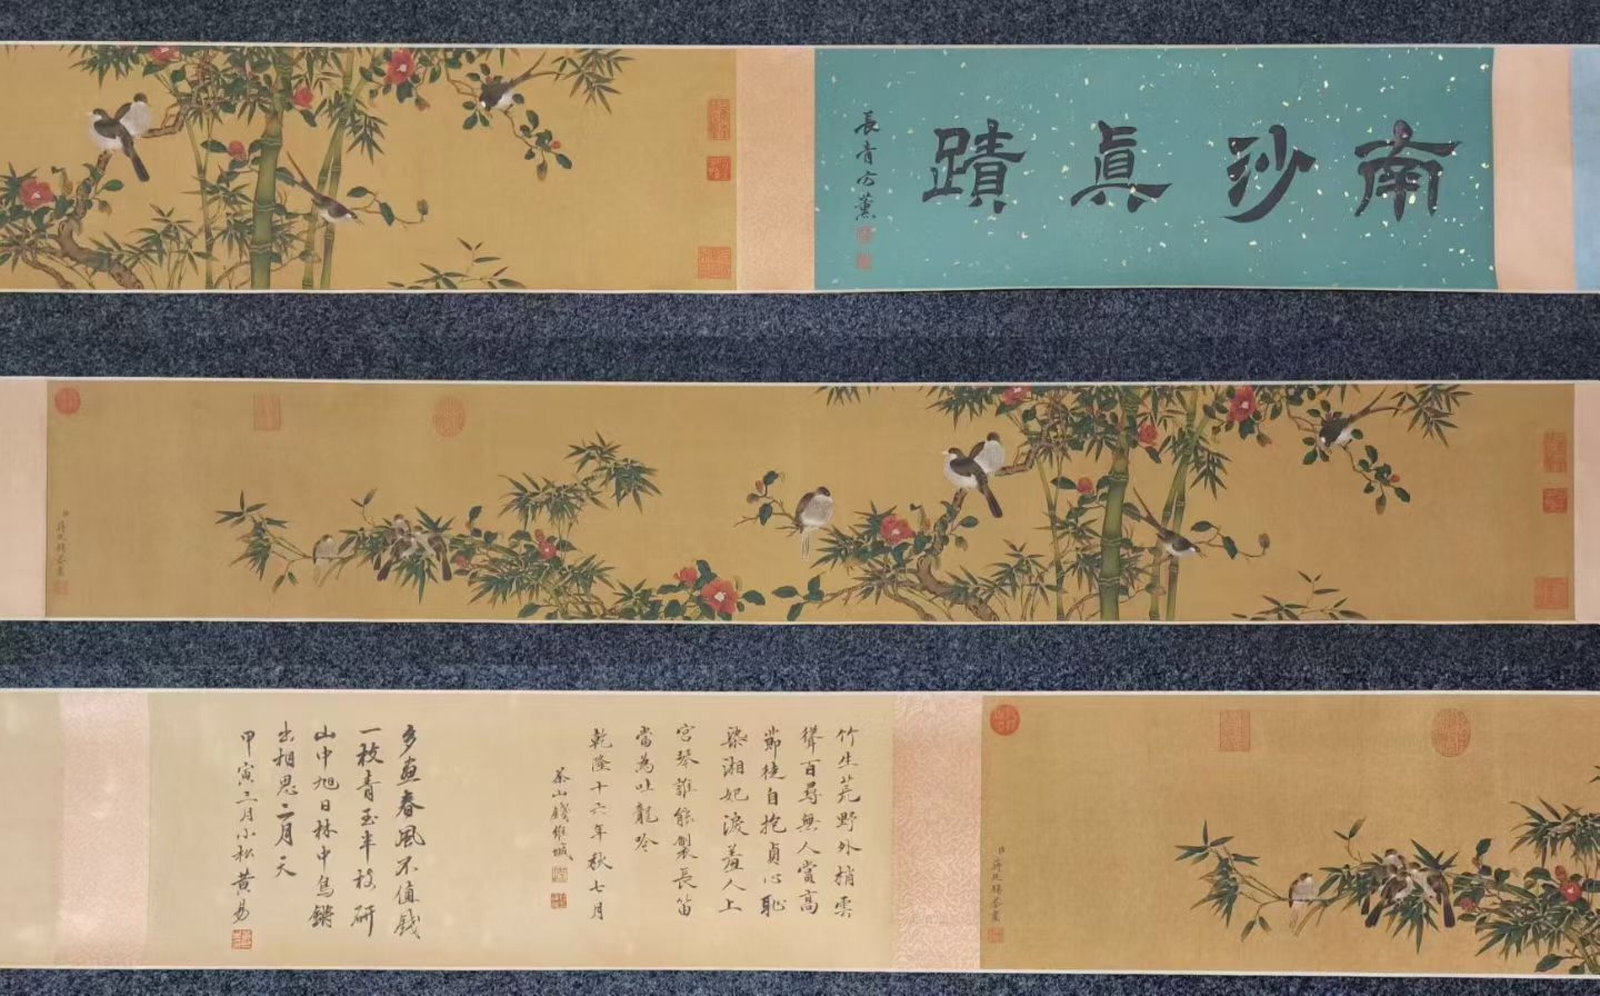 南沙真蹟
長青方薰
臣蔣廷錫恭畫
竹生荒野外梢雲
聳百尋無人賞高
節徒自抱貞心恥
染湘妃淚羞人上
宮琴誰能製長笛
當為吐龍吟
乾隆十六年秋七月
茶山錢維城
多畫春風不值錢
一枝青玉半枝研
山中旭日林中鳥
出相思二月天
甲寅二月小松黃易
臣蔣廷錫恭畫